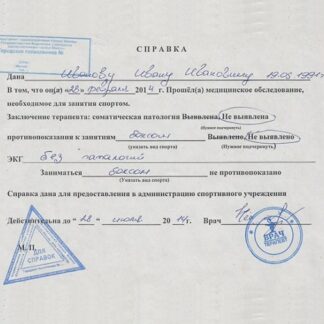 Городская поликлиника №
СПРАВКА
Дана Иванову Ивану Ивановичу 19.05.1991г.
В том, что он(а) «28» февраля 2014 г. Прошёл(а) медицинское обследование,
необходимое для занятия спортом.
Заключение терапевта: соматическая патология Выявлена, Не выявлена
(Нужное подчеркнуть)
противопоказания к занятиям боксом Выявлено, Не выявлено
(Указать вид спорта) (Нужное подчеркнуть)
ЭКГ без патологий
Заниматься боксом не противопоказано
(Указать вид спорта)
Справка дана для предоставления в администрацию спортивного учреждения
Действительна до «28» июля 2014г. Врач
М. П.
ДЛЯ
СПРАВОК
ВРАЧ
ТЕРАПЕВТ